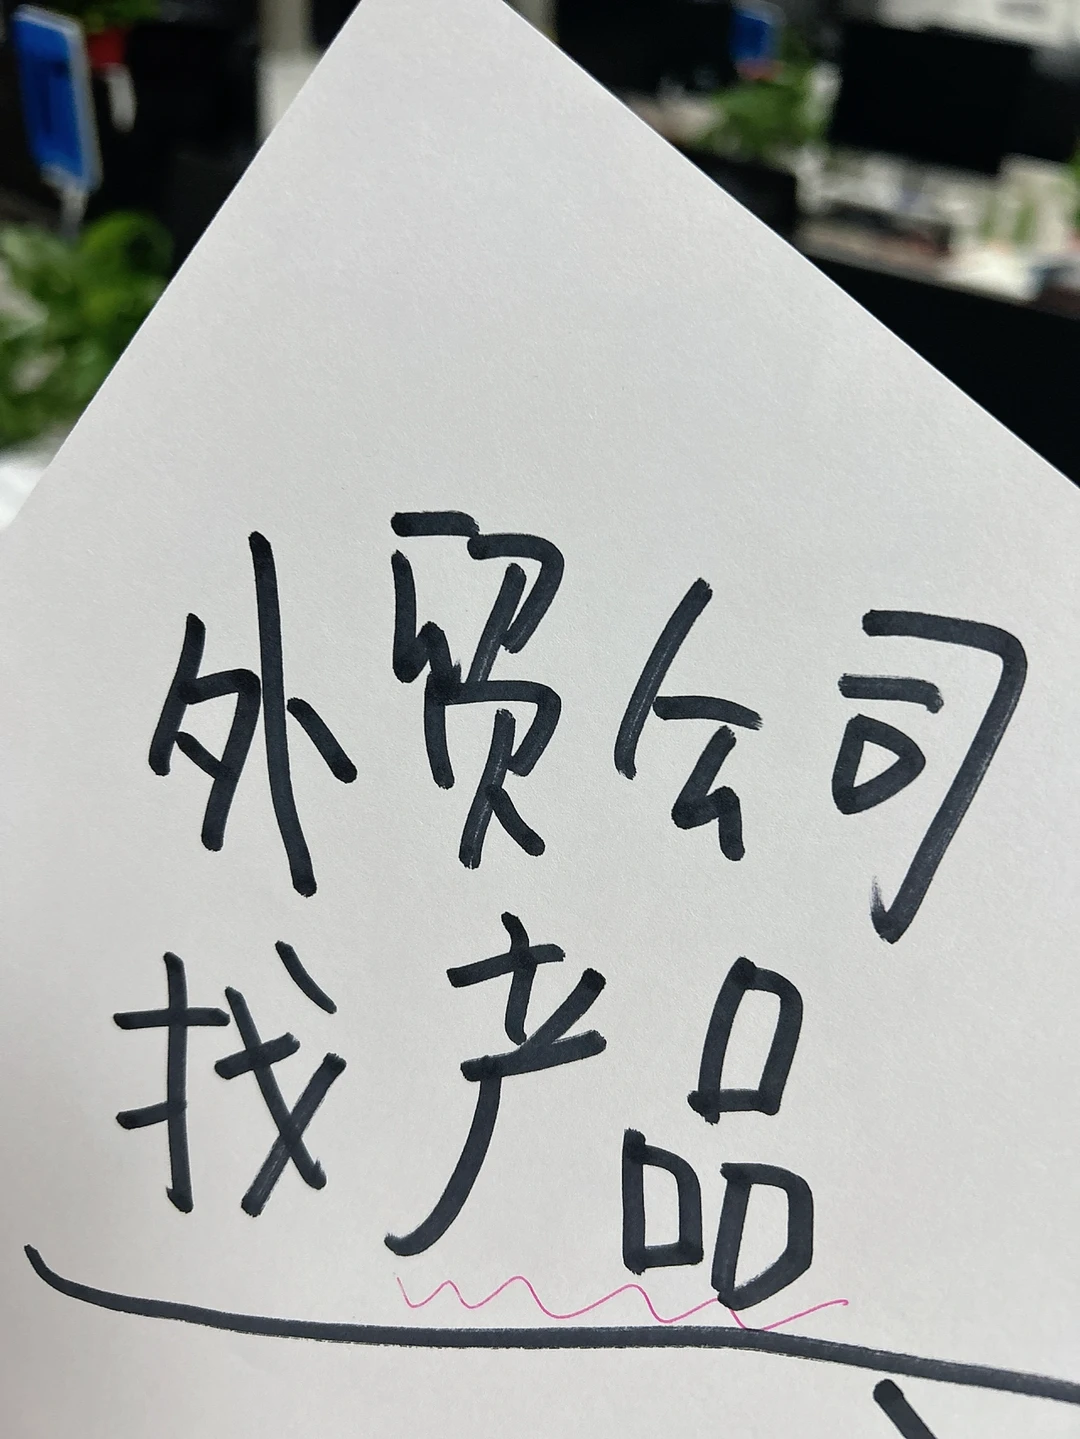 外贸公司
找产品